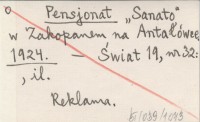 Pensjonat „Sanato"
w Zakopanem na Antałówce
1924. — Świat 19, nr. 32:
, il.
Reklama.